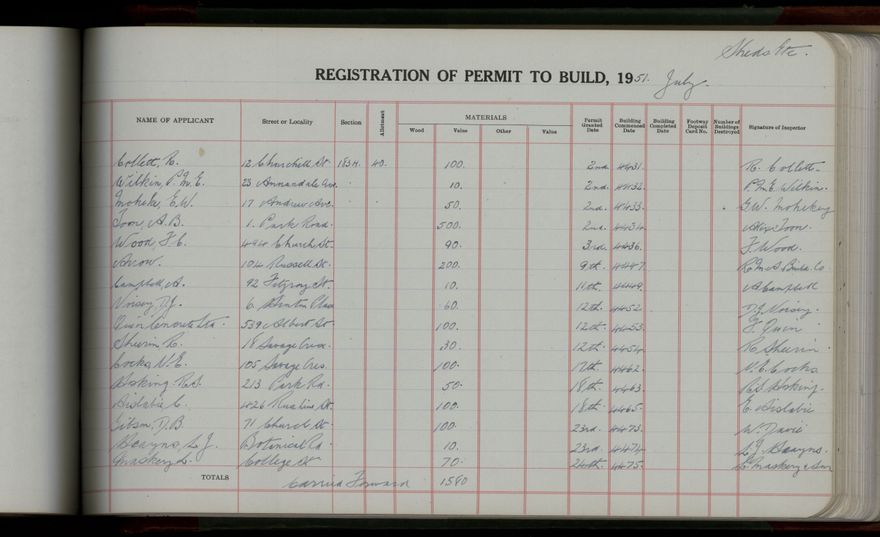 Sheds Etc.
REGISTRATION OF PERMIT TO BUILD, 1951. July.
NAME OF APPLICANT Street or Locality Section Allotment MATERIALS Wood Value Other Value Permit Granted Date Building Commenced Date Building Completed Date Footway Deposit Card No. Number of Buildings Destroyed Signature of Inspector
Collett, R. 12 Churchill St. 183H. 40. 100. 2nd. 4431. R. Collett.
Wilkin, P.M.E. 23 Annandale Ave. 10. 2nd. 4432. P.M.E. Wilkin.
E.W. 17 Andrew Ave. 50. 2nd. 4433.
Toon, A.B. 1. Park Road. 500. 2nd. 4434. Toon.
Wood, F.C. 494 Church St. 90. 3rd. 4436. F. Wood.
104 Russell St. 200. 9th. 4447.
Campbell, A. 92 Fitzroy St. 10. 11th. 4449. A Campbell
Voisey, D.J. 6. 60. 12th. 4452. D.J. Voisey.
Quin Concrete 539 Albert St. 100. 12th. 4453. F. Quin
Sheerin R. 18 Savage Cres. 30. 12th. 4454. R. Sheerin.
Cocks N.E. 105 Savage Cres. 100. 17th. 4462. N.E. Cocks
Hosking R.S. 213 Park Rd. 50. 18th. 4463. R.S. Hosking.
Aislabie C. 426 Ruahine St. 100. 18th. 4465. Aislabie
Gibson, D.B. 71 Church St. 100. 23rd. 4473. W. Davis
L.J. Botanical Rd. 10. 23rd. 4474. L.J.
Maskery L. College St 70. 24th. 4475. L. Maskery & Son
TOTALS Carried Forward 1580